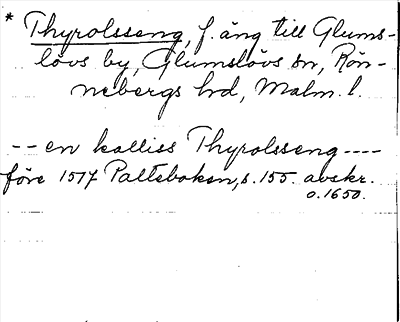 * Thyrolsseng, f. äng till Glums-
lövs by, Glumslövs sn, Rön-
nebergs hd, Malm. l.
-- en kalliss Thyrolsseng ----
före 1517 Palteboken, s. 155. avskr.
o. 1650.